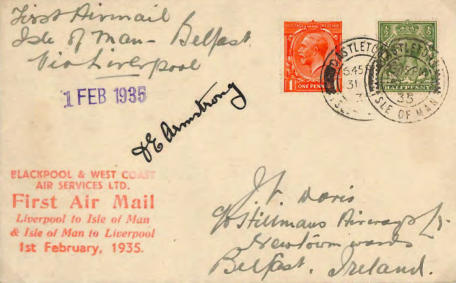 First Airmail
Isle of Man - Belfast
Via Liverpool
1 FEB 1935
ONE PENNY
HALFPENNY
CASTLETOWN
5.45 PM
31
ISLE OF MAN
CASTLETOWN
35
ISLE OF MAN
D E Armstrong
BLACKPOOL & WEST COAST
AIR SERVICES LTD.
First Air Mail
Liverpool to Isle of Man
& Isle of Man to Liverpool
1st February, 1935.
J W Davis
c/o Hillmans Airways Ld.
Newtownwards
Belfast, Ireland.